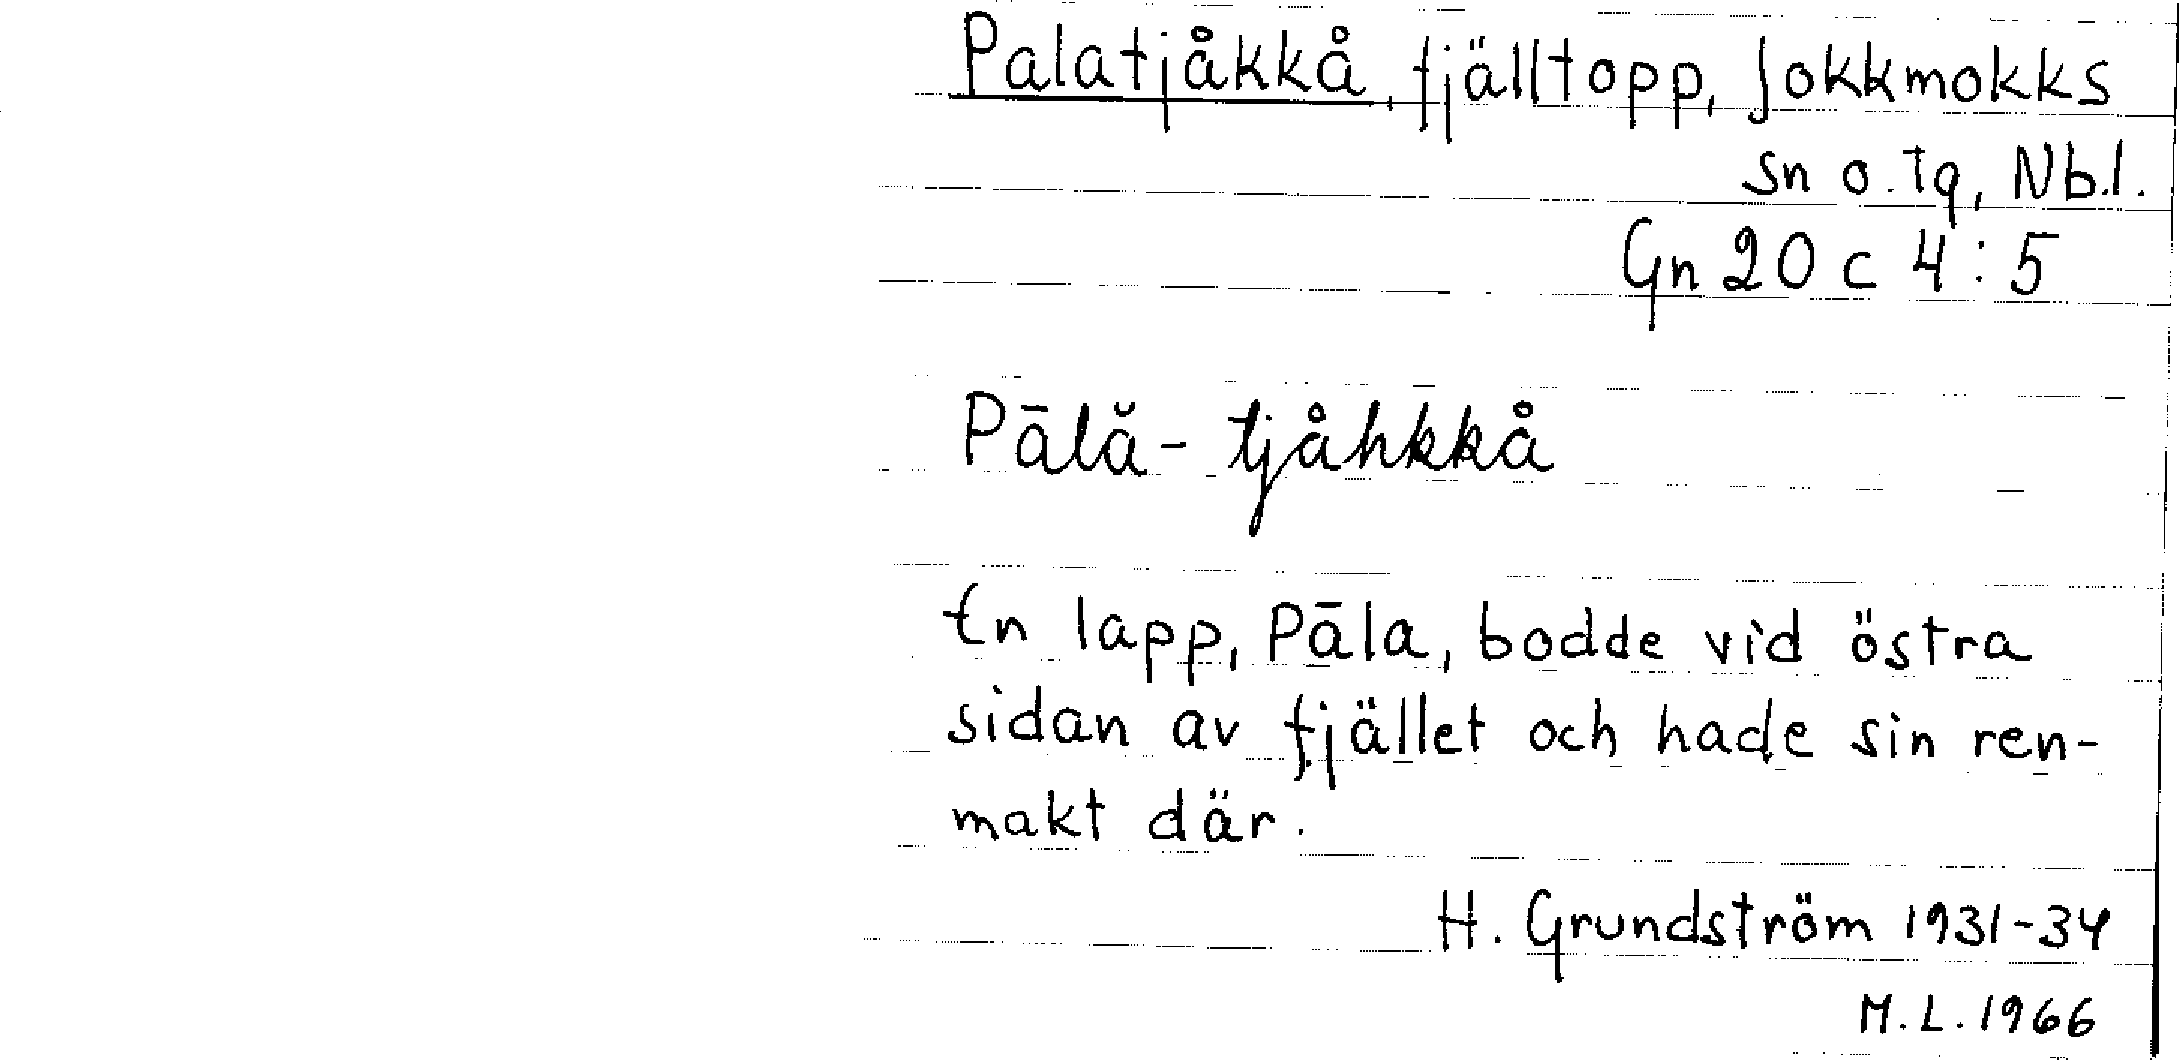 Palatjåkkå, fjälltopp, Jokkmokks
sn o. tg, Nb.l.
Gn 20 c 4:5
Pālă-tjåhkkå
En lapp, Pāla, bodde vid östra
sidan av fjället och hade sin ren-
makt där.
H. Grundström 1931-34
M.L. 1966